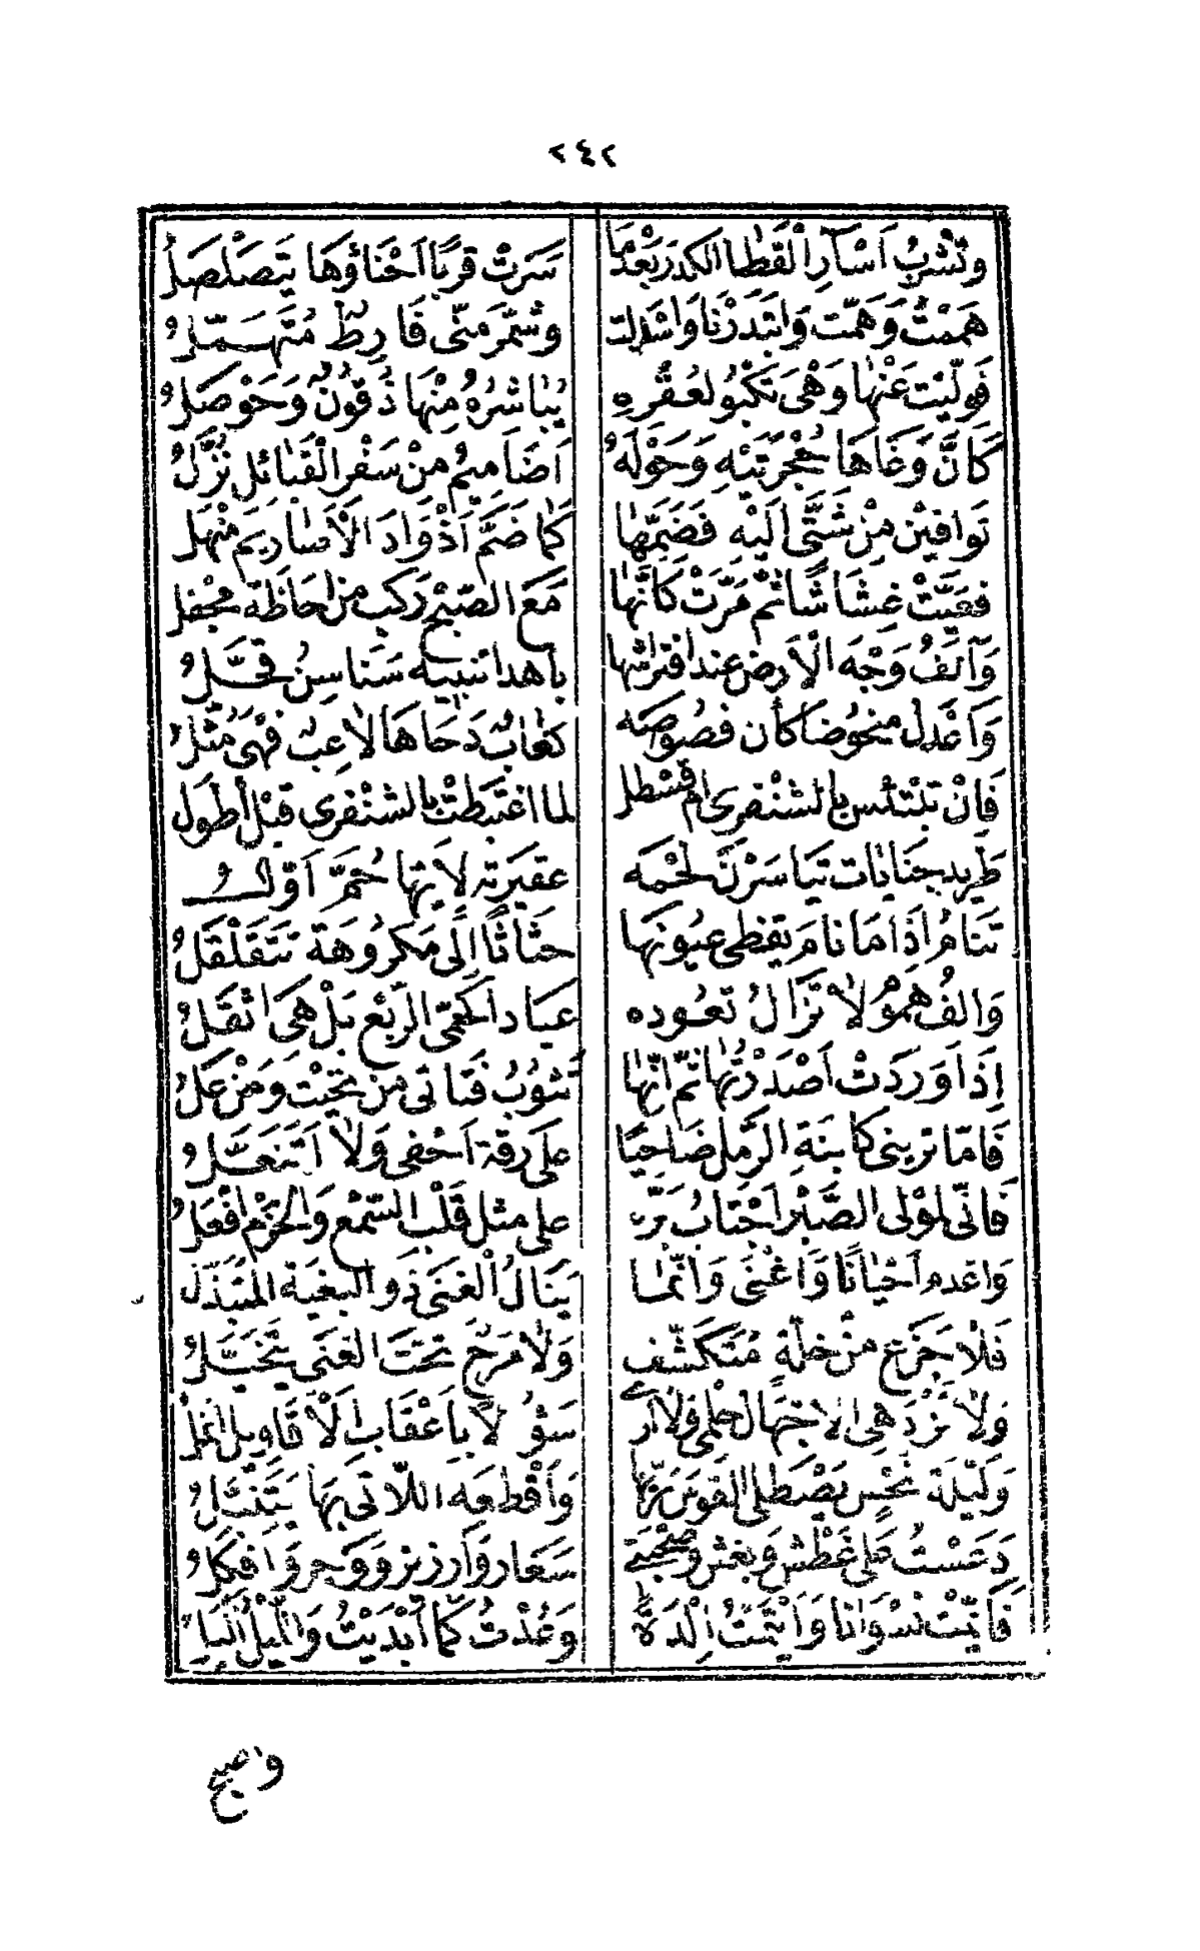 ٢٤٢
وَتَشْرَبُ اَسْآرِ الْقَطَا الكدر بَعْدَمَا سَرَتْ قَرَبًا اَحْنَاؤُهَا تَتَصَلْصَلُ
هَمَمْتُ وَهَمَّت وَابْتَدَرْنَا وَاسْدَلت وَشَمَّرَ مَنّى فَارِطٌ مُتَهَمَّلُ
فَوَلَّيْت عَنْهَا وَهْىَ تَكْبُو لِعُقْرِهِ يُبَاشَرُهُ مِنْهَا ذُقُونٌ وَحَوْصَلُ
كَاَنَّ وَغَاهَا حُجْرَتَيْهِ وَحَوْلَهُ اَضَامِيمُ مِنْ سَفْرِ الْقَبَائِل نُزَّلُ
تَوَافَيْن مِنْ شَتَّى اَلَيْهِ فَضَمَّهَا كَمَا ضَمَّ اَذْوَادَ الْاَصَارِيم مَنْهَل
فعَبَّتْ غِشَاشًا ثُمَّ مَرَّتْ كَاَنَّهَا مَعَ الصّبْحِ رَكب من احَاظَة مجْفل
وَآلَفُ وَجْهَ الْاَرض عند افتراشها بأهدا تنبيه سَنَاسِنُ قحَّلُ
وَاَعْدل منحُوضا كأن فصُوصَه كعَاب دَحَاهَا لاَعِب فَهْىَ مُثَّلُ
فَاِنْ تَبْتَئس بالشنْفرى ام قسْطل لما اغتَبَطَتْ بالشنْفرى قبْل أطْوَل
طَريد جنَايات تَيَاسَرْنَ لَحْمَه عقيرَته لاَيّها حُمَّ اَوّل
تَنَامُ اِذَا مَا نَامَ يَقظى عيُونهَا حثَاثًا اِلَى مَكرُوهَة تَتَقَلْقَلُ
وَالفُ هُمُوم لاَ تَزَالُ تعُوده عيَادا كحمّى الرّبْع بَلْ هىَ اثقَلُ
اِذَا وَرَدَتْ اَصْدَرْتُهَا ثمّ اِنّهَا تَثُوبُ فتَاتى من تحَيْت وَمنْ عَلُ
فَامّا تريينى كابنَةِ الرّمل ضَاحيًا علَى رقة اَحْفى وَلاَ اَتَنَعَّلُ
فانّى لمَوْلى الصَّبْر اَجْتَابُ بَزّه على مثل قَلْبِ السّمْع وَالحزْم افعَلُ
وَاعدم اَحْيَانًا وَاَغْنَى وَانّمَا يَنَالُ الْغنَى ذُو البغية المتَبَذّل
فَلاَ جَزع منْ خلّة مُتَكَشّف وَلاَ مَرح تحْتَ الغنَى يَتَخَيَّلُ
وَلاَ تَزْدَهى الاجْهَال حلمى وَلاَ اَرَى سَؤُلاً بِاَعْقَابِ الْاَقَاوِيل انمُلُ
وَلَيْلَة نَحْسٍ يَصْطَلى القوْسَ رَبّهَا وَاَقْطعَه اللاَّتى بهَا يَتَنَبَّلُ
دَعَسْتُ عَلى غَطْش وَبغش وَصُحْبَتى سَعَار وَارزيز وَوَجر وَافكَلُ
فَاَيّمْت نسْوَانا وَاَيْتَمْتُ اِلْدَة وَعُدْتُ كَمَا اَبْدَيْتُ وَاللَّيْلُ اَلْيَلُ
واصبح